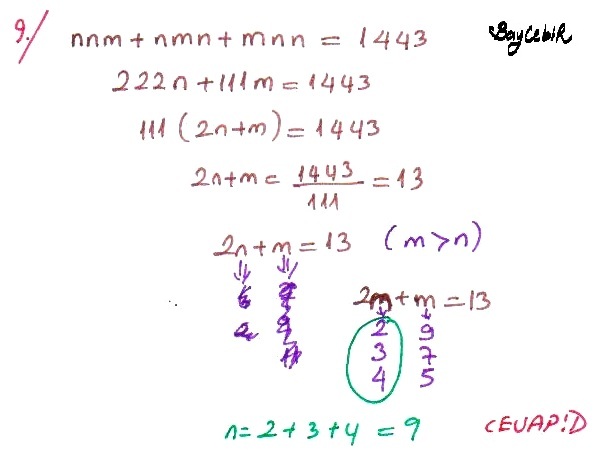 9./ nnm + nmn + mnn = 1443 BayCebiR
222n + 111m = 1443
111 (2n+m) = 1443
2n+m = 1443/111 = 13
2n+m = 13 (m>n)
2m+m = 13
2 9
3 7
4 5
n = 2 + 3 + 4 = 9 CEVAP!D